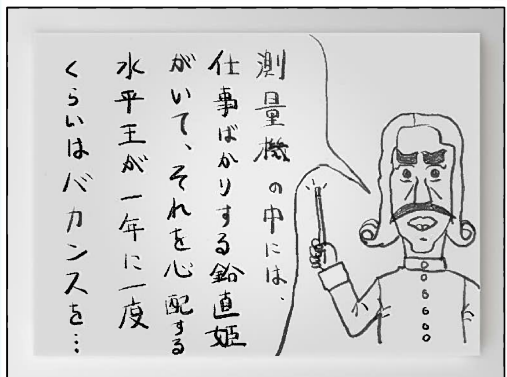 測量機の中には、
仕事ばかりする鉛直姫
がいて、それを心配する
水平王が一年に一度
くらいはバカンスを…